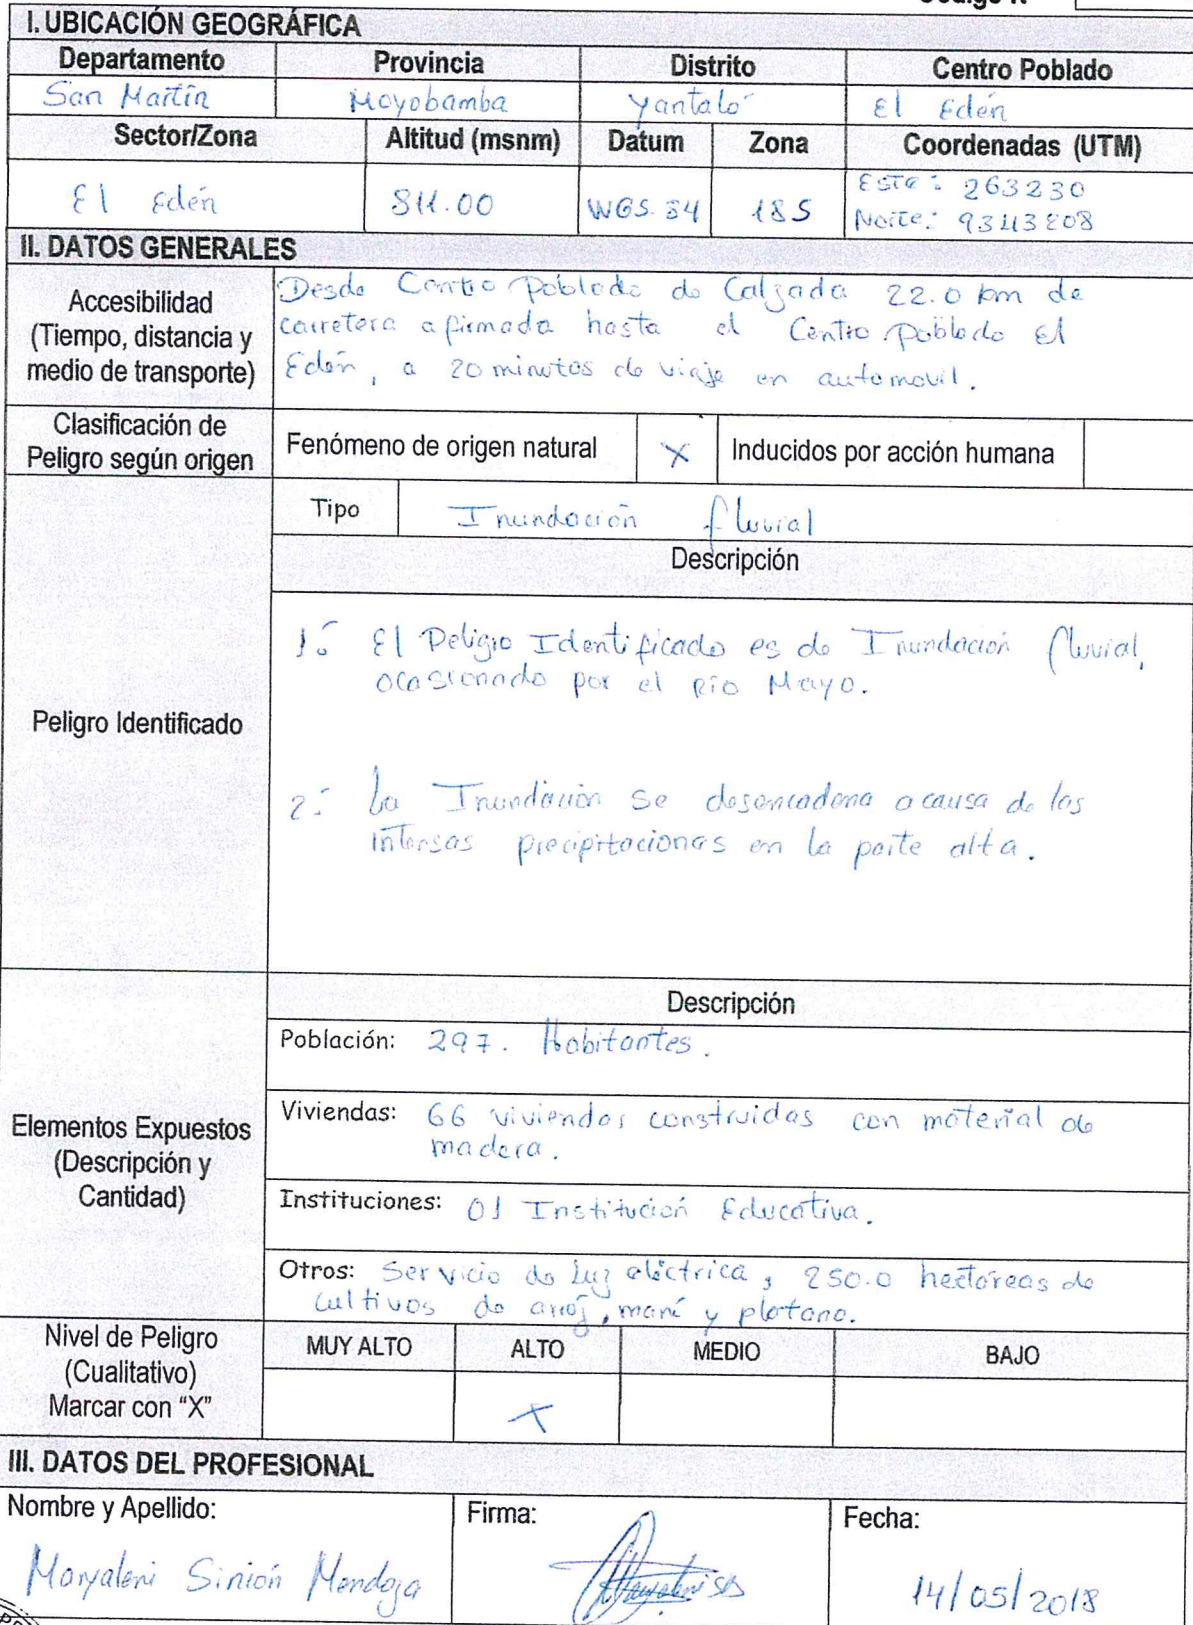 I. UBICACIÓN GEOGRÁFICA
Departamento Provincia Distrito Centro Poblado
San Martín Moyobamba Yantaló El Edén
Sector/Zona Altitud (msnm) Datum Zona Coordenadas (UTM)
El Edén 811.00 WGS.84 18S Este: 263230
Norte: 9343208
II. DATOS GENERALES
Accesibilidad
(Tiempo, distancia y
medio de transporte)
Desde Centro Poblado de Calzada 22.0 km de
carretera afirmada hasta el Centro Poblado El
Edén, a 20 minutos de viaje en automovil.
Clasificación de
Peligro según origen
Fenómeno de origen natural X Inducidos por acción humana
Peligro Identificado
Tipo Inundación fluvial
Descripción
1.- El Peligro Identificado es de Inundación fluvial,
ocasionado por el Río Mayo.
2.- La Inundación se desencadena a causa de las
intensas precipitaciones en la parte alta.
Elementos Expuestos
(Descripción y
Cantidad)
Descripción
Población: 297. Habitantes.
Viviendas: 66 viviendas construidas con material de
madera.
Instituciones: 01 Institución Educativa.
Otros: Servicio de luz eléctrica, 250.0 hectáreas de
cultivos de arroz, maní y platano.
Nivel de Peligro
(Cualitativo)
Marcar con “X”
MUY ALTO ALTO MEDIO BAJO
X
III. DATOS DEL PROFESIONAL
Nombre y Apellido: Firma: Fecha:
Maryaleni Sinión Mendoza 14/05/2018